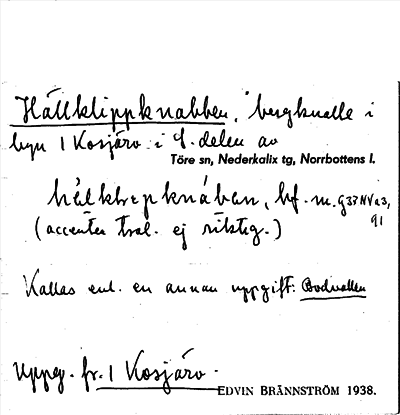 Hällklippknabben, bergknalle i
byn 1 Kosjärv i S. delen av
Töre sn, Nederkalix tg, Norrbottens l.
bf. m. G37NVa3,
91
(accenten trol. ej riktig.)
Kallas enl. en annan uppgift: Bodvallen
Uppg. fr. 1 Kosjärv.
EDVIN BRÄNNSTRÖM 1938.